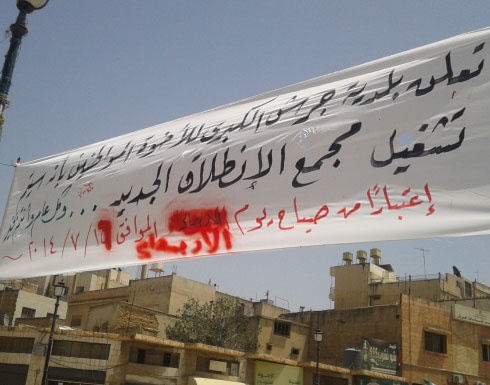 تعلن بلدية جرش الكبرى للأخوة المواطنين بأنه سيتم
تشغيل مجمع الإنطلاق الجديد ... وكل عام وأنتم بخير
إعتباراً من صباح يوم الاربعاء الموافق ٢٠١٤/٧/١٦